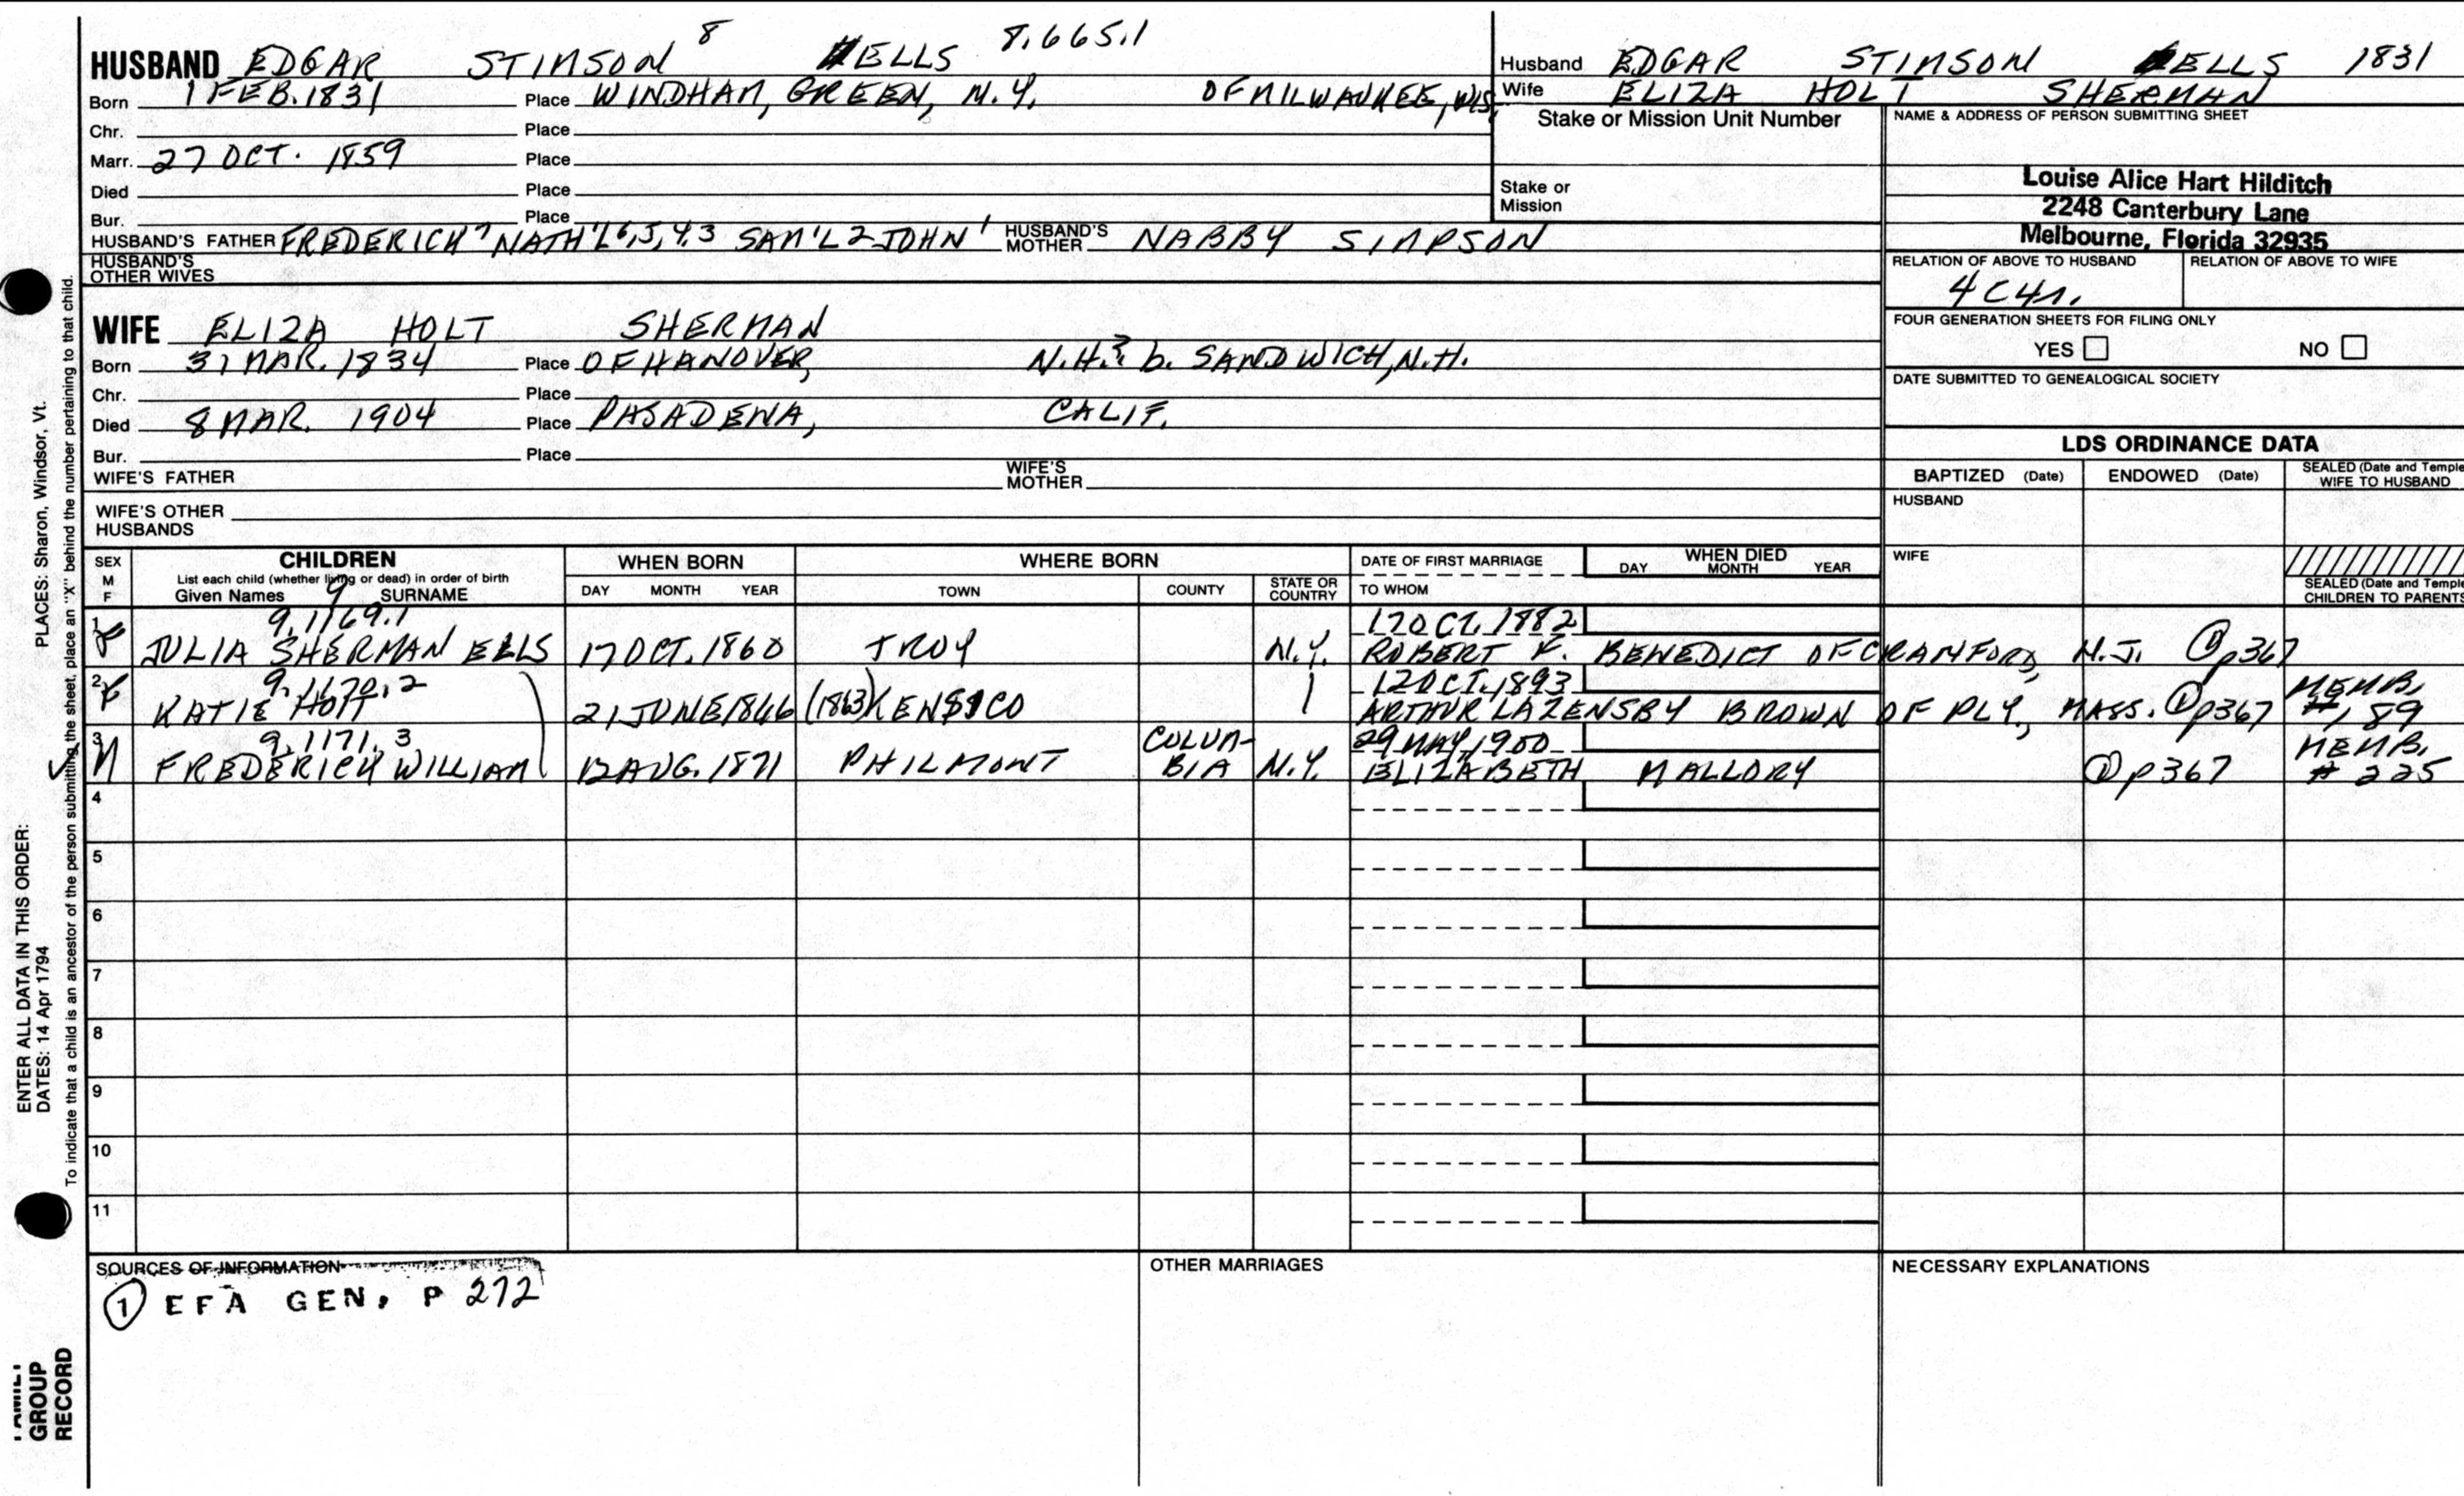 HUSBAND EDGAR STIMSON 8 ELLS 8.665.1
Born 1 FEB. 1831 Place WINDHAM, GREEN, N.Y. OF MILWAUKEE, WIS.
Chr. Place
Marr. 27 OCT. 1859 Place
Died Place
Bur. Place
HUSBAND'S FATHER FREDERICK 7 NATH'L 6,5,4,3 SAM'L 2 JOHN 1 HUSBAND'S MOTHER NABBY SIMPSON
HUSBAND'S OTHER WIVES
Husband EDGAR STIMSON ELLS 1831
Wife ELIZA HOLT SHERMAN
Stake or Mission Unit Number
Stake or Mission
NAME & ADDRESS OF PERSON SUBMITTING SHEET
Louise Alice Hart Hilditch
2248 Canterbury Lane
Melbourne, Florida 32935
RELATION OF ABOVE TO HUSBAND RELATION OF ABOVE TO WIFE
4C4r.
FOUR GENERATION SHEETS FOR FILING ONLY
YES NO
DATE SUBMITTED TO GENEALOGICAL SOCIETY
WIFE ELIZA HOLT SHERMAN
Born 31 MAR. 1834 Place OF HANOVER, N.H.? b. SANDWICH, N.H.
Chr. Place
Died 8 MAR. 1904 Place PASADENA, CALIF.
Bur. Place
WIFE'S FATHER WIFE'S MOTHER
WIFE'S OTHER HUSBANDS
LDS ORDINANCE DATA
BAPTIZED (Date) ENDOWED (Date) SEALED (Date and Temple WIFE TO HUSBAND
HUSBAND
WIFE
SEALED (Date and Temple CHILDREN TO PARENTS
SEX M F
CHILDREN
List each child (whether living or dead) in order of birth
Given Names 9 SURNAME
WHEN BORN
DAY MONTH YEAR
WHERE BORN
TOWN COUNTY STATE OR COUNTRY
DATE OF FIRST MARRIAGE
TO WHOM
WHEN DIED
DAY MONTH YEAR
9.1169.1 17 OCT. 1882
1 F JULIA SHERMAN ELLS 17 OCT. 1860 TROY N.Y. ROBERT K. BENEDICT OF CRANFORD, N.J. 1 p367
9.1170.2 12 OCT. 1893 MEMB.
2 F KATIE HOLT 21 JUNE 1866 (1863) KENSICO ARTHUR LAZENSBY BROWN OF PLY., MASS. 1 p367 #189
9.1171.3 COLUM- 29 MAY, 1900 MEMB.
3 M FREDERICK WILLIAM 12 AUG. 1871 PHILMONT BIA N.Y. ELIZABETH MALLORY 1 p367 # 225
4
5
6
7
8
9
10
11
SOURCES OF INFORMATION
1 EFA GEN. P 272
OTHER MARRIAGES
NECESSARY EXPLANATIONS
ENTER ALL DATA IN THIS ORDER:
DATES: 14 Apr 1794 PLACES: Sharon, Windsor, Vt.
To indicate that a child is an ancestor of the person submitting the sheet, place an "X" behind the number pertaining to that child.
FAMILY
GROUP
RECORD